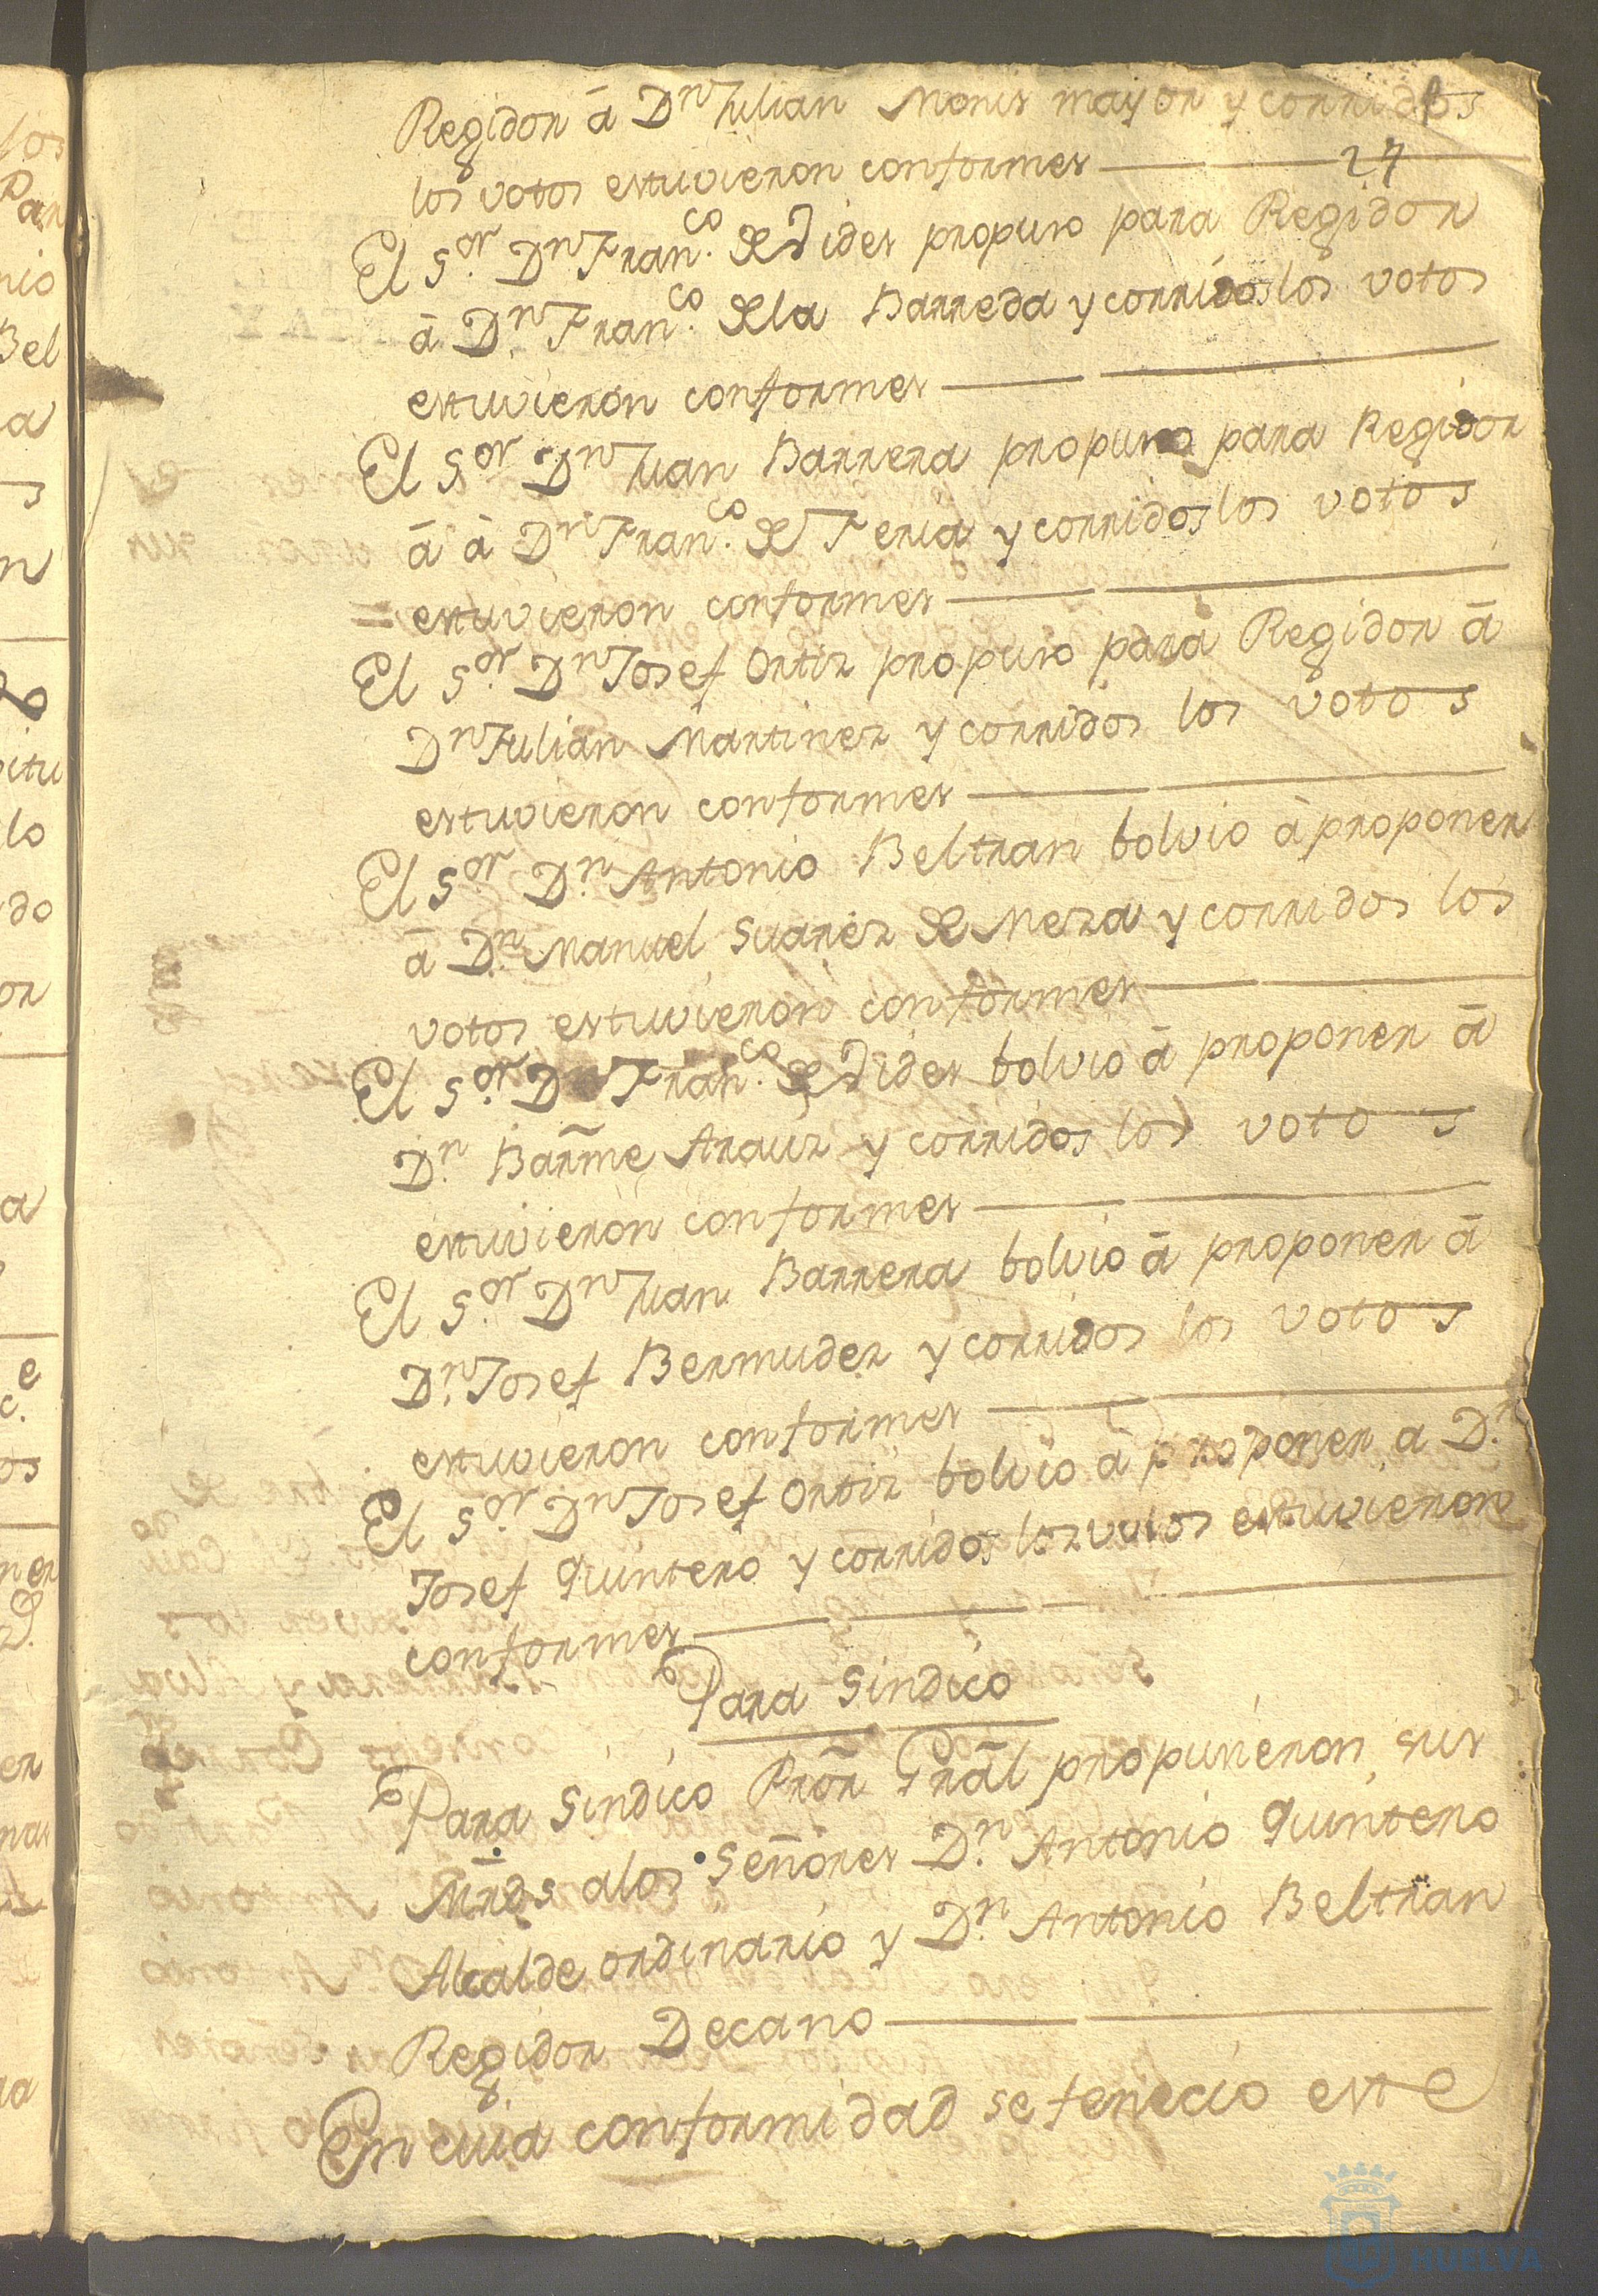 Regidor â Dn Julian Monis mayor y corridos
los votos estuvieron conformes
27
El Sor. Dn Fran.co de Vides propuso para Regidor
â D.n Fran.co dela Barreda y corridos los votos
estuvieron conformes
El Sor Dn Juan Barrera propuso para Regidor
â â Dn Fran.co de Feria y corridos los votos
= estuvieron conformes
El Sor. Dn Josef Ortiz propuso para Regidor â
Dn Julian Martinez y corridos los votos
estuvieron conformes
El Sor D.n Antonio Beltran bolvio â proponer
â D.n Manuel Suarez de Meza y corridos los
votos estuvieron conformes
El Sor. Dn Fran.co de Vides bolvio â proponer â
D.n Barme Arauz y corridos los votos
estuvieron conformes
El Sor. Dn Juan Barrera bolvio â proponer â
D.n Josef Bermudez y corridos los votos
estuvieron conformes
El Sor. Dn Josef Ortiz bolvio â proponer a D.n
Josef Quintero y corridos los votos estuvieron
conformes
Para Sindico
Para Sindico Pror Gral propusieron sus
Mrds alos Señores D.n Antonio Quintero
Alcalde ordinario y D.n Antonio Beltran
Regidor Decano
En cuia conformidad se fenecio este
HUELVA